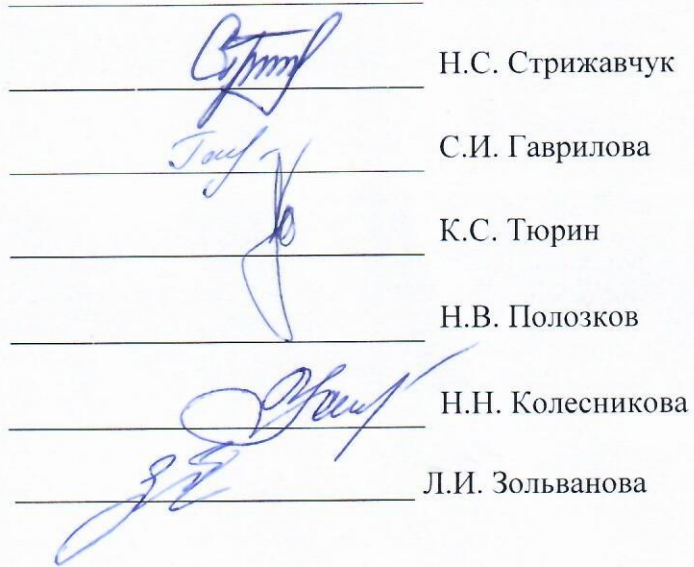 Н.С. Стрижавчук
С.И. Гаврилова
К.С. Тюрин
Н.В. Полозков
Н.Н. Колесникова
Л.И. Зольванова